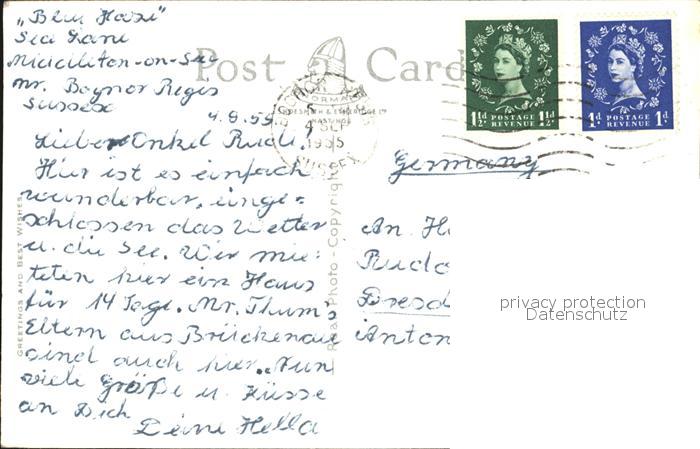 "Blue Haze"
Sea Lane
Middleton-on-Sea
nr. Bognor Regis
Sussex
Post Card
4.9.55
Lieber Onkel Rudi!
Hier ist es einfach
wunderbar, einge-
schlossen das Wetter
u. die See. Wir mie-
teten hier ein Haus
für 14 Tage. Mr. Thum's
Eltern aus Brückenau
sind auch hier. Nun
viele Größe u. Küsse
an Dich
Deine Hella
GREETINGS AND BEST WISHES
Real Photo - Copyright
NORMAN
SHOESMITH & ETHERIDGE LTD
HASTINGS
BOGNOR REGIS
4 SEP
1955
SUSSEX
1½D POSTAGE REVENUE 1½D
1D POSTAGE REVENUE 1D
Germany
An H
Ruda
Dresd
Anton
privacy protection
Datenschutz